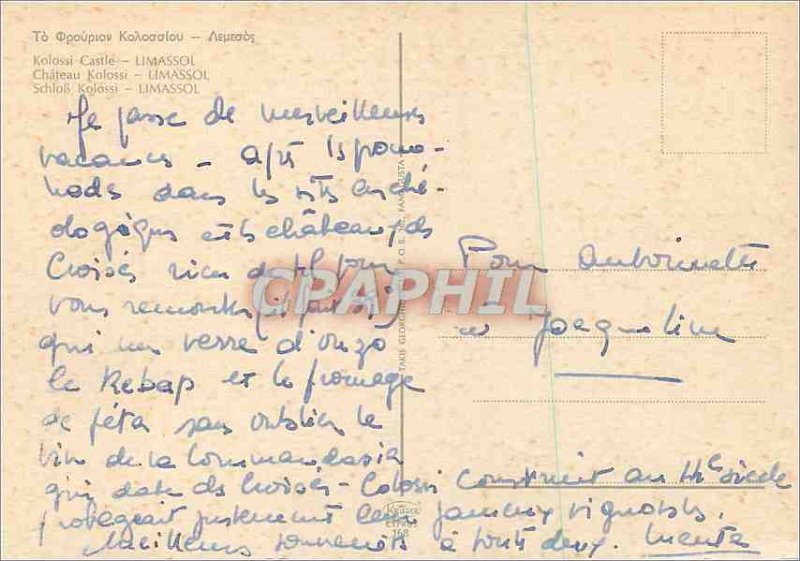 Τὸ Φρούριον Κολοσσίου – Λεμεσὸς
Kolossi Castle – LIMASSOL
Château Kolossi – LIMASSOL
Schloß Kolossi – LIMASSOL
Je passe de merveilleuses
vacances – après les prome-
nades dans les sites arché-
ologiques et les châteaux des
Croisés rien de tel pour
vous remonter (il fait
qu'un verre d'ouzo
le Kebap et le fromage
de féta sans oublier le
vin de la Commandaria
qui date des Croisés – Colossi construit au 14e siècle
protégeait justement leurs fameux vignobles.
Meilleurs souvenirs à toutes deux.
Pour Antoinette
et Jacqueline
TAKIS GEORGHI P.O.B. FAMAGUSTA
CPAPHIL
168